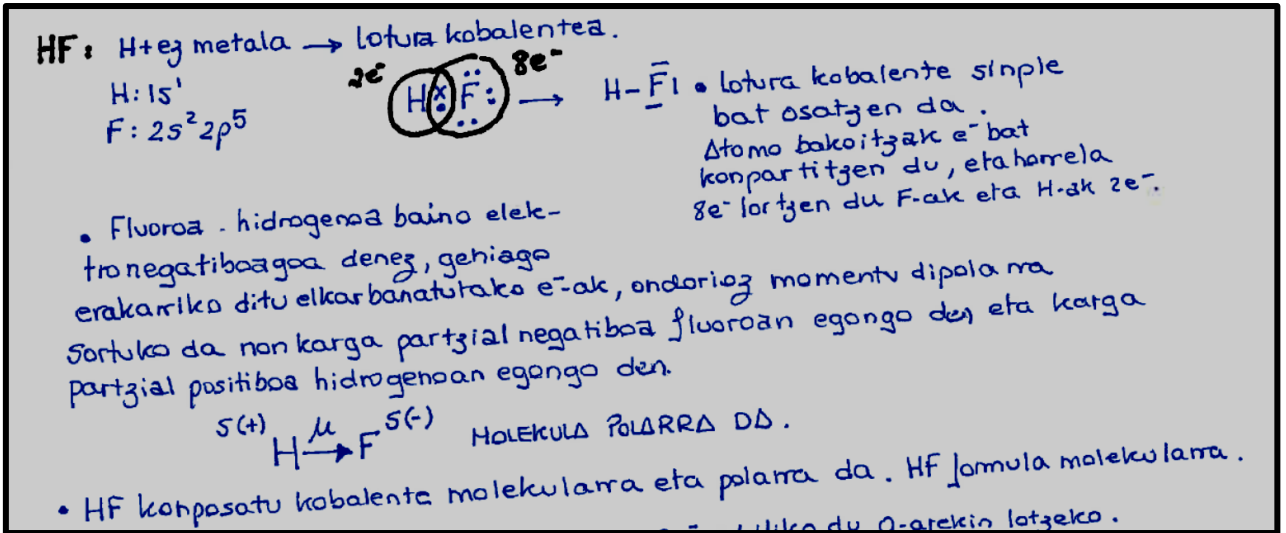 HF: H+ez metala → lotura kobalentea.
H: 1s¹
F: 2s² 2p⁵
2e⁻ H F 8e⁻ → H-F
• lotura kobalente sinple
bat osatzen da.
Atomo bakoitzak e⁻ bat
konpartitzen du, eta horrela
8e⁻ lortzen du F-ak eta H-ak 2e⁻.
• Fluoroa hidrogenoa baino elek-
tronegatiboagoa denez, gehiago
erakarriko ditu elkarbanatutako e⁻-ak, ondorioz momentu dipolarra
sortuko da non karga partzial negatiboa fluoroan egongo den eta karga
partzial positiboa hidrogenoan egongo den.
δ(+) H μ→ F δ(-) MOLEKULA POLARRA DA.
• HF konposatu kobalente molekularra eta polarra da. HF formula molekularra.
du O-arekin lotzeko.